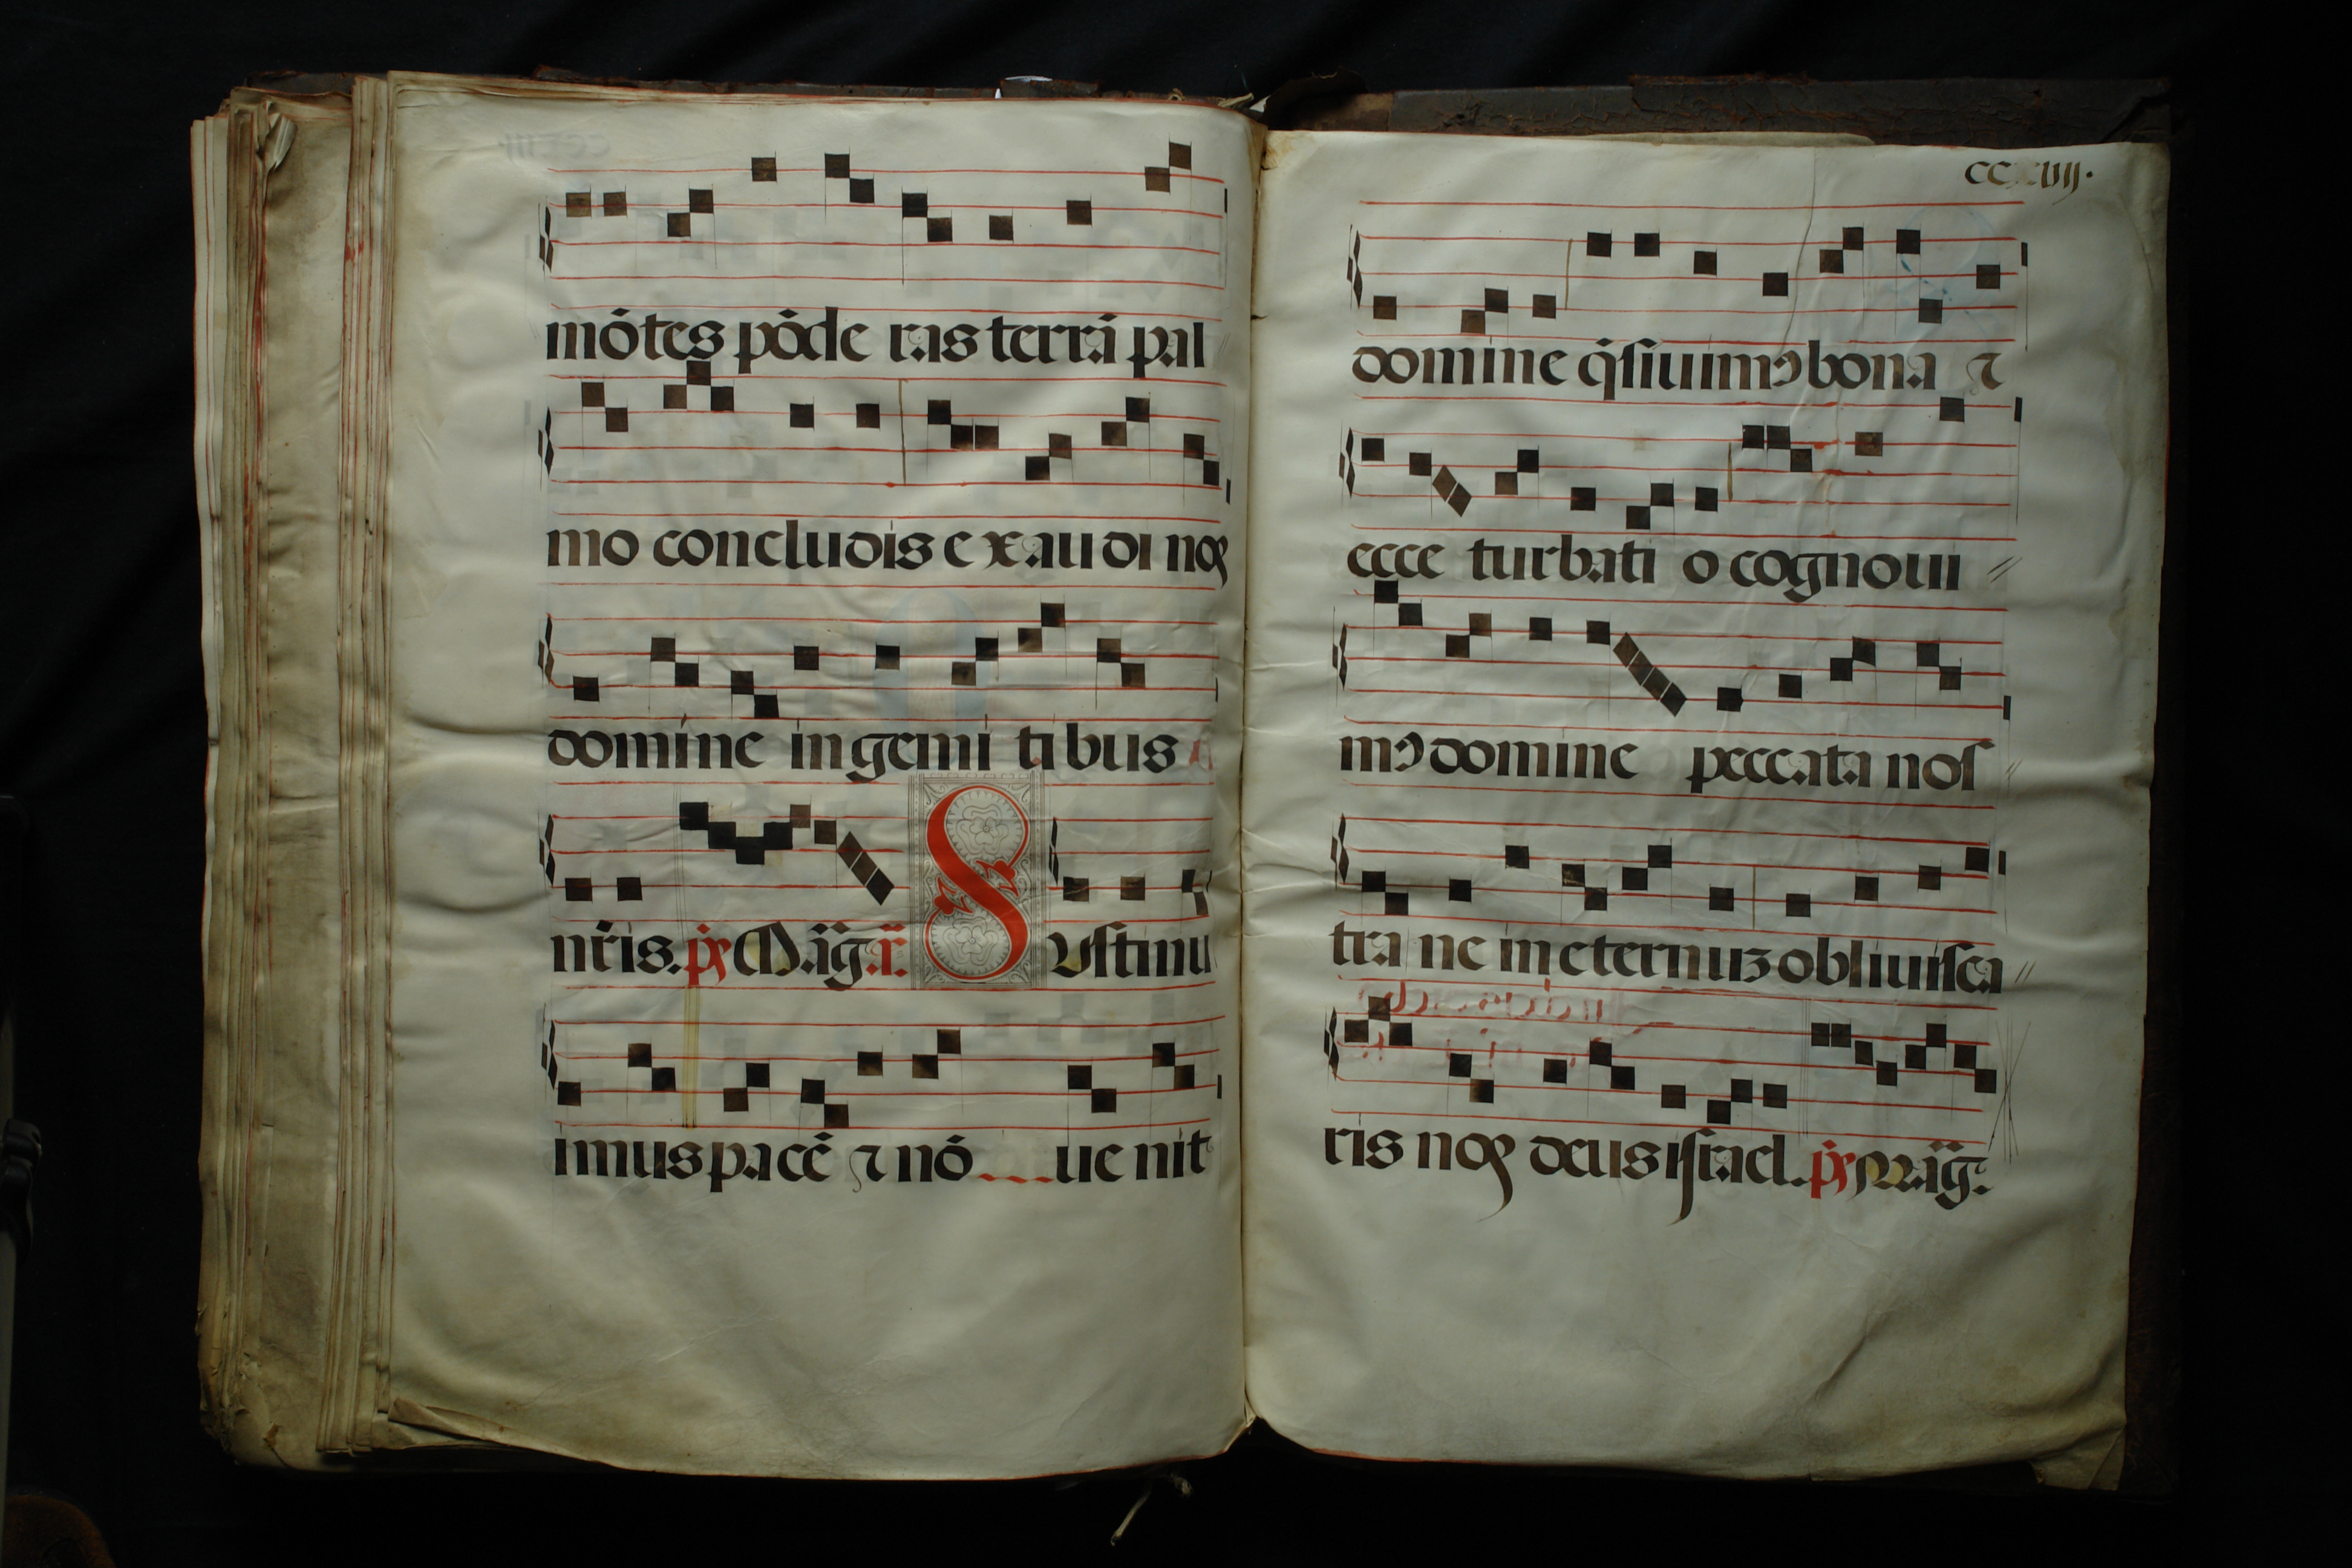 mōtes pōde ras terrā pal
mo concludis exaudi noꝫ
domine in gemi tibus
nr̄is. p̄s Māg. a.̄ Sustinu
imus pacē ⁊ nō ue nit
domine q̄siuimꝰ bona ⁊
ecce turbati o cognoui
mꝰ domine peccata nos
tra ne in eternuꝫ obliuisca
ris noꝫ deus israel. p̄s māg.